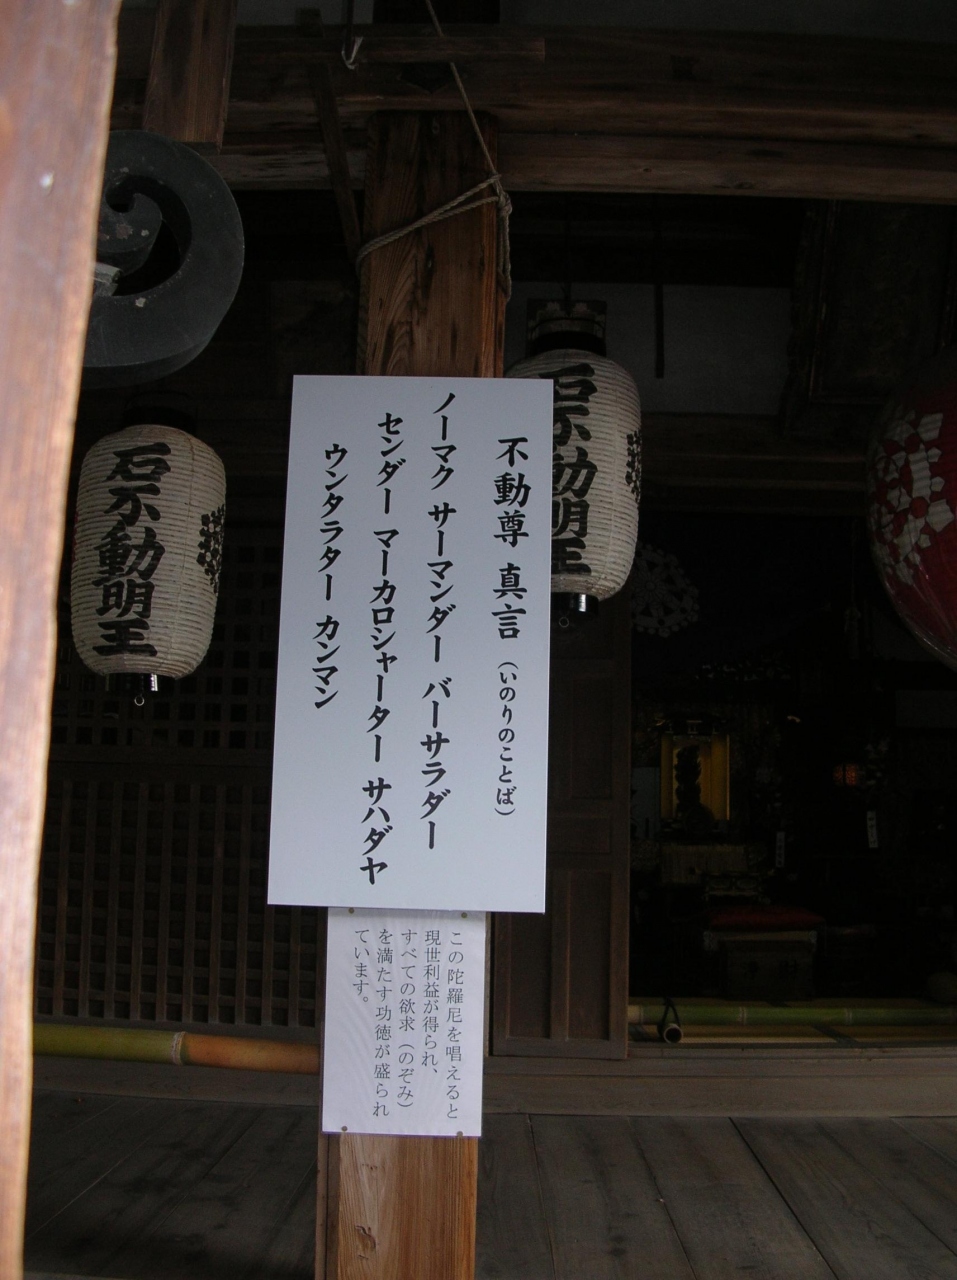 不動尊 真言（いのりのことば）
ノーマク サーマンダー バーサラダー
センダー マーカロシャーター サハダヤ
ウンタラター カンマン
この陀羅尼を唱えると
現世利益が得られ、
すべての欲求（のぞみ）
を満たす功徳が盛られ
ています。
石不動明王
石不動明王